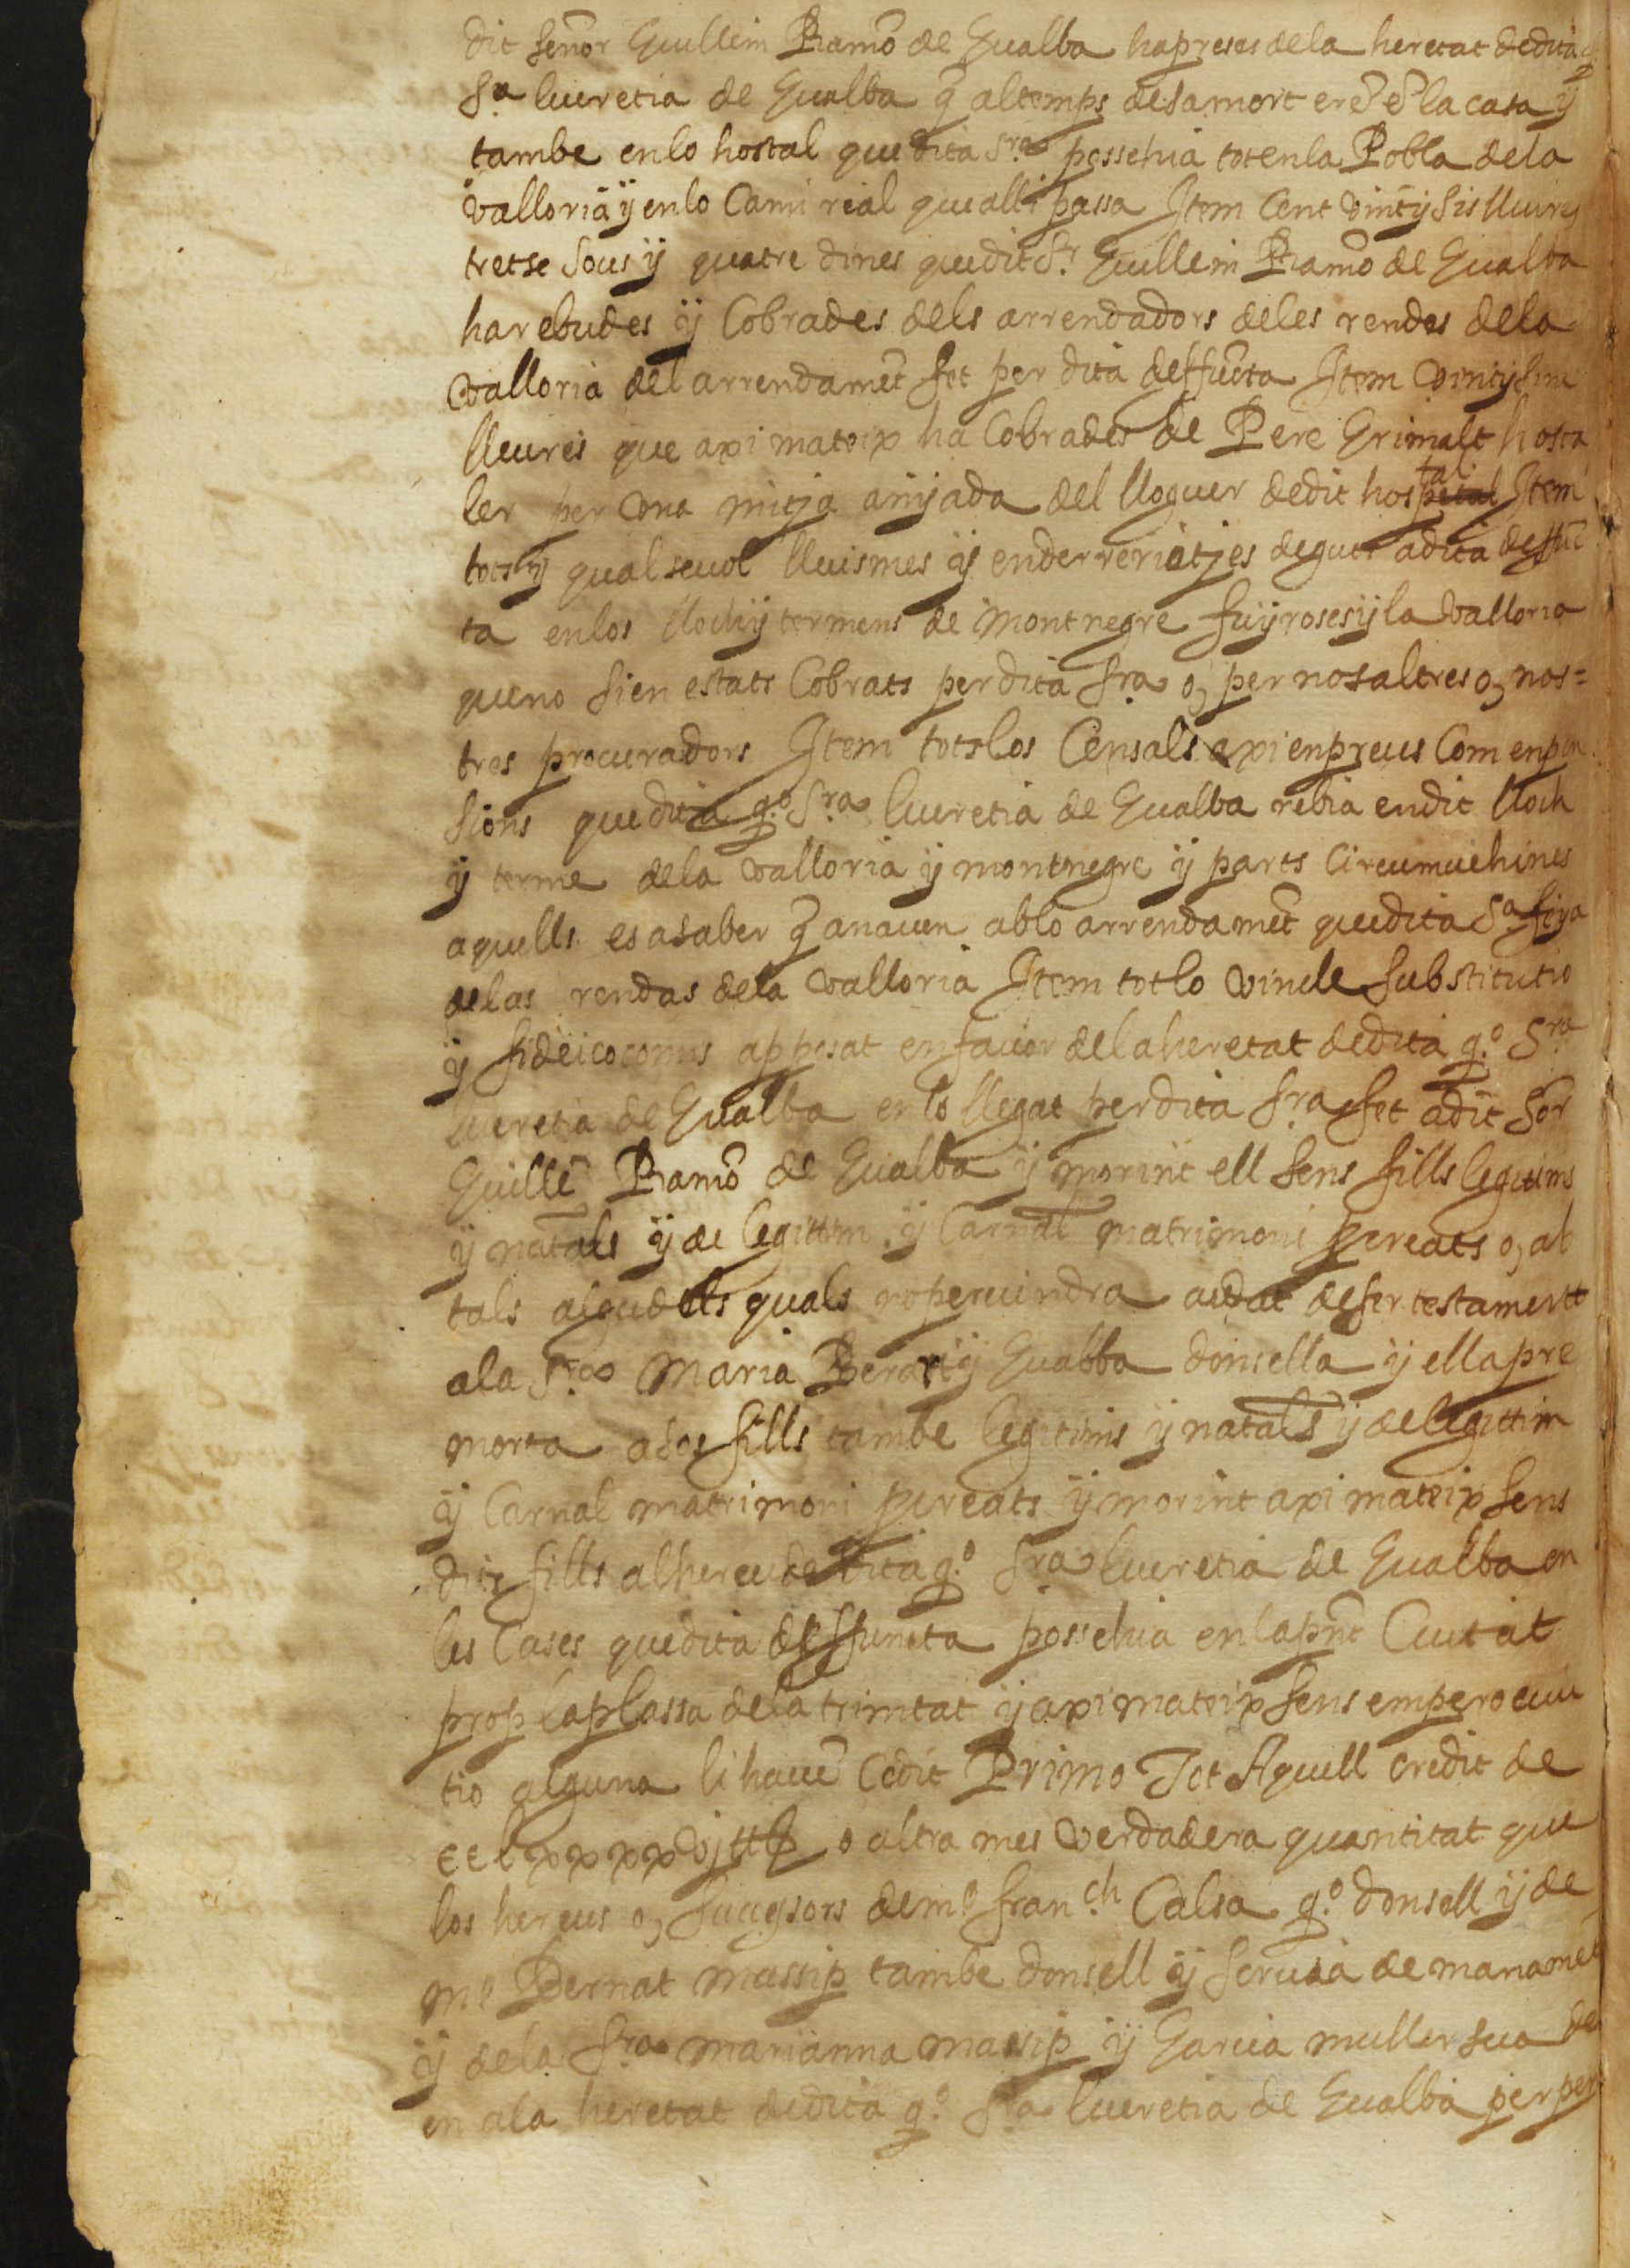 dit señor Guillem Ramō de Gualba hapreses dela heretat dedita
Sª lucretia de Gualba q̄ altemps desamort erē ē la casa y
tambe enlo hostal quedita Sra possehia totenla Pobla dela
valloria ÿ enlo Cami real quealli passa Item Cent vintÿ sis lluires
tretse sous ÿ quatre dines quedit Sr Guillem Ramō de Gualba
harebudes ÿ Cobrades dels arrendadors deles rendes dela
valloria del arrendamēt fet per dita deffūcta Item vintÿ sinc
lleures que axi mateix ha Cobrades de Pere Grimalt hosta
ler per vna mitja anÿada del lloguer dedit hostal Item
tots ÿ qualseuol lluismes ÿ enderreriatjes deguts adita deffūc
ta enlos llochs ÿ termens de Montnegre fuÿroses ÿ la valloria
queno sien estats Cobrats perdita Sra o, per nosaltres o, nos=
tres procuradors Item totslos Censals axi enpreus Com enpen
sions quedita q.º Sra lucretia de Gualba rebia endit lloch
ÿ terme dela valloria ÿ montnegre ÿ parts Circumuehines
aquells esasaber q̄ anauen ablo arrendamēt quedita Sª feya
delas rendas dela valloria Item totlo vincle substitutio
ÿ fideicocomis apposat enfauor delaheretat dedita q.º Sra
lucretia de Gualba enlo llegat perdita Sra fet adit Sor
Guillē Ramō de Gualba ÿ morint ell sens fills legitims
ÿ natāls ÿ de legittim ÿ Carnal matrimoni pcreats o, ab
tals algu dels quals noperuindra aedat defer testamentt
ala Sra Maria Berart ÿ Gualba donsella ÿ ellapre
morta asos fills tambe legitims ÿ natāls ÿ de legittim
ÿ Carnal matrimoni pcreats ÿ morint axi mateix sens
dits fills alhereu de dita q.º Sra lucretia de Gualba en
les Cases quedita deffuncta possehia enlapn̄t Ciutat
prop laplassa dela trinitat ÿ axi mateix sens empero euic
tio alguna li hauē Cedit Primo Tot Aquell credit de
o altra mes verdadera quantitat que
los hereus o, successors de mº franch Calsa q.º donsell ÿ de
mº Bernat massip tambe donsell ÿ scriuā de manamēt
ÿ dela Sra marianna massip ÿ Garcia mullersua de
en ala heretat dedita q.º Sra lucretia de Gualba per